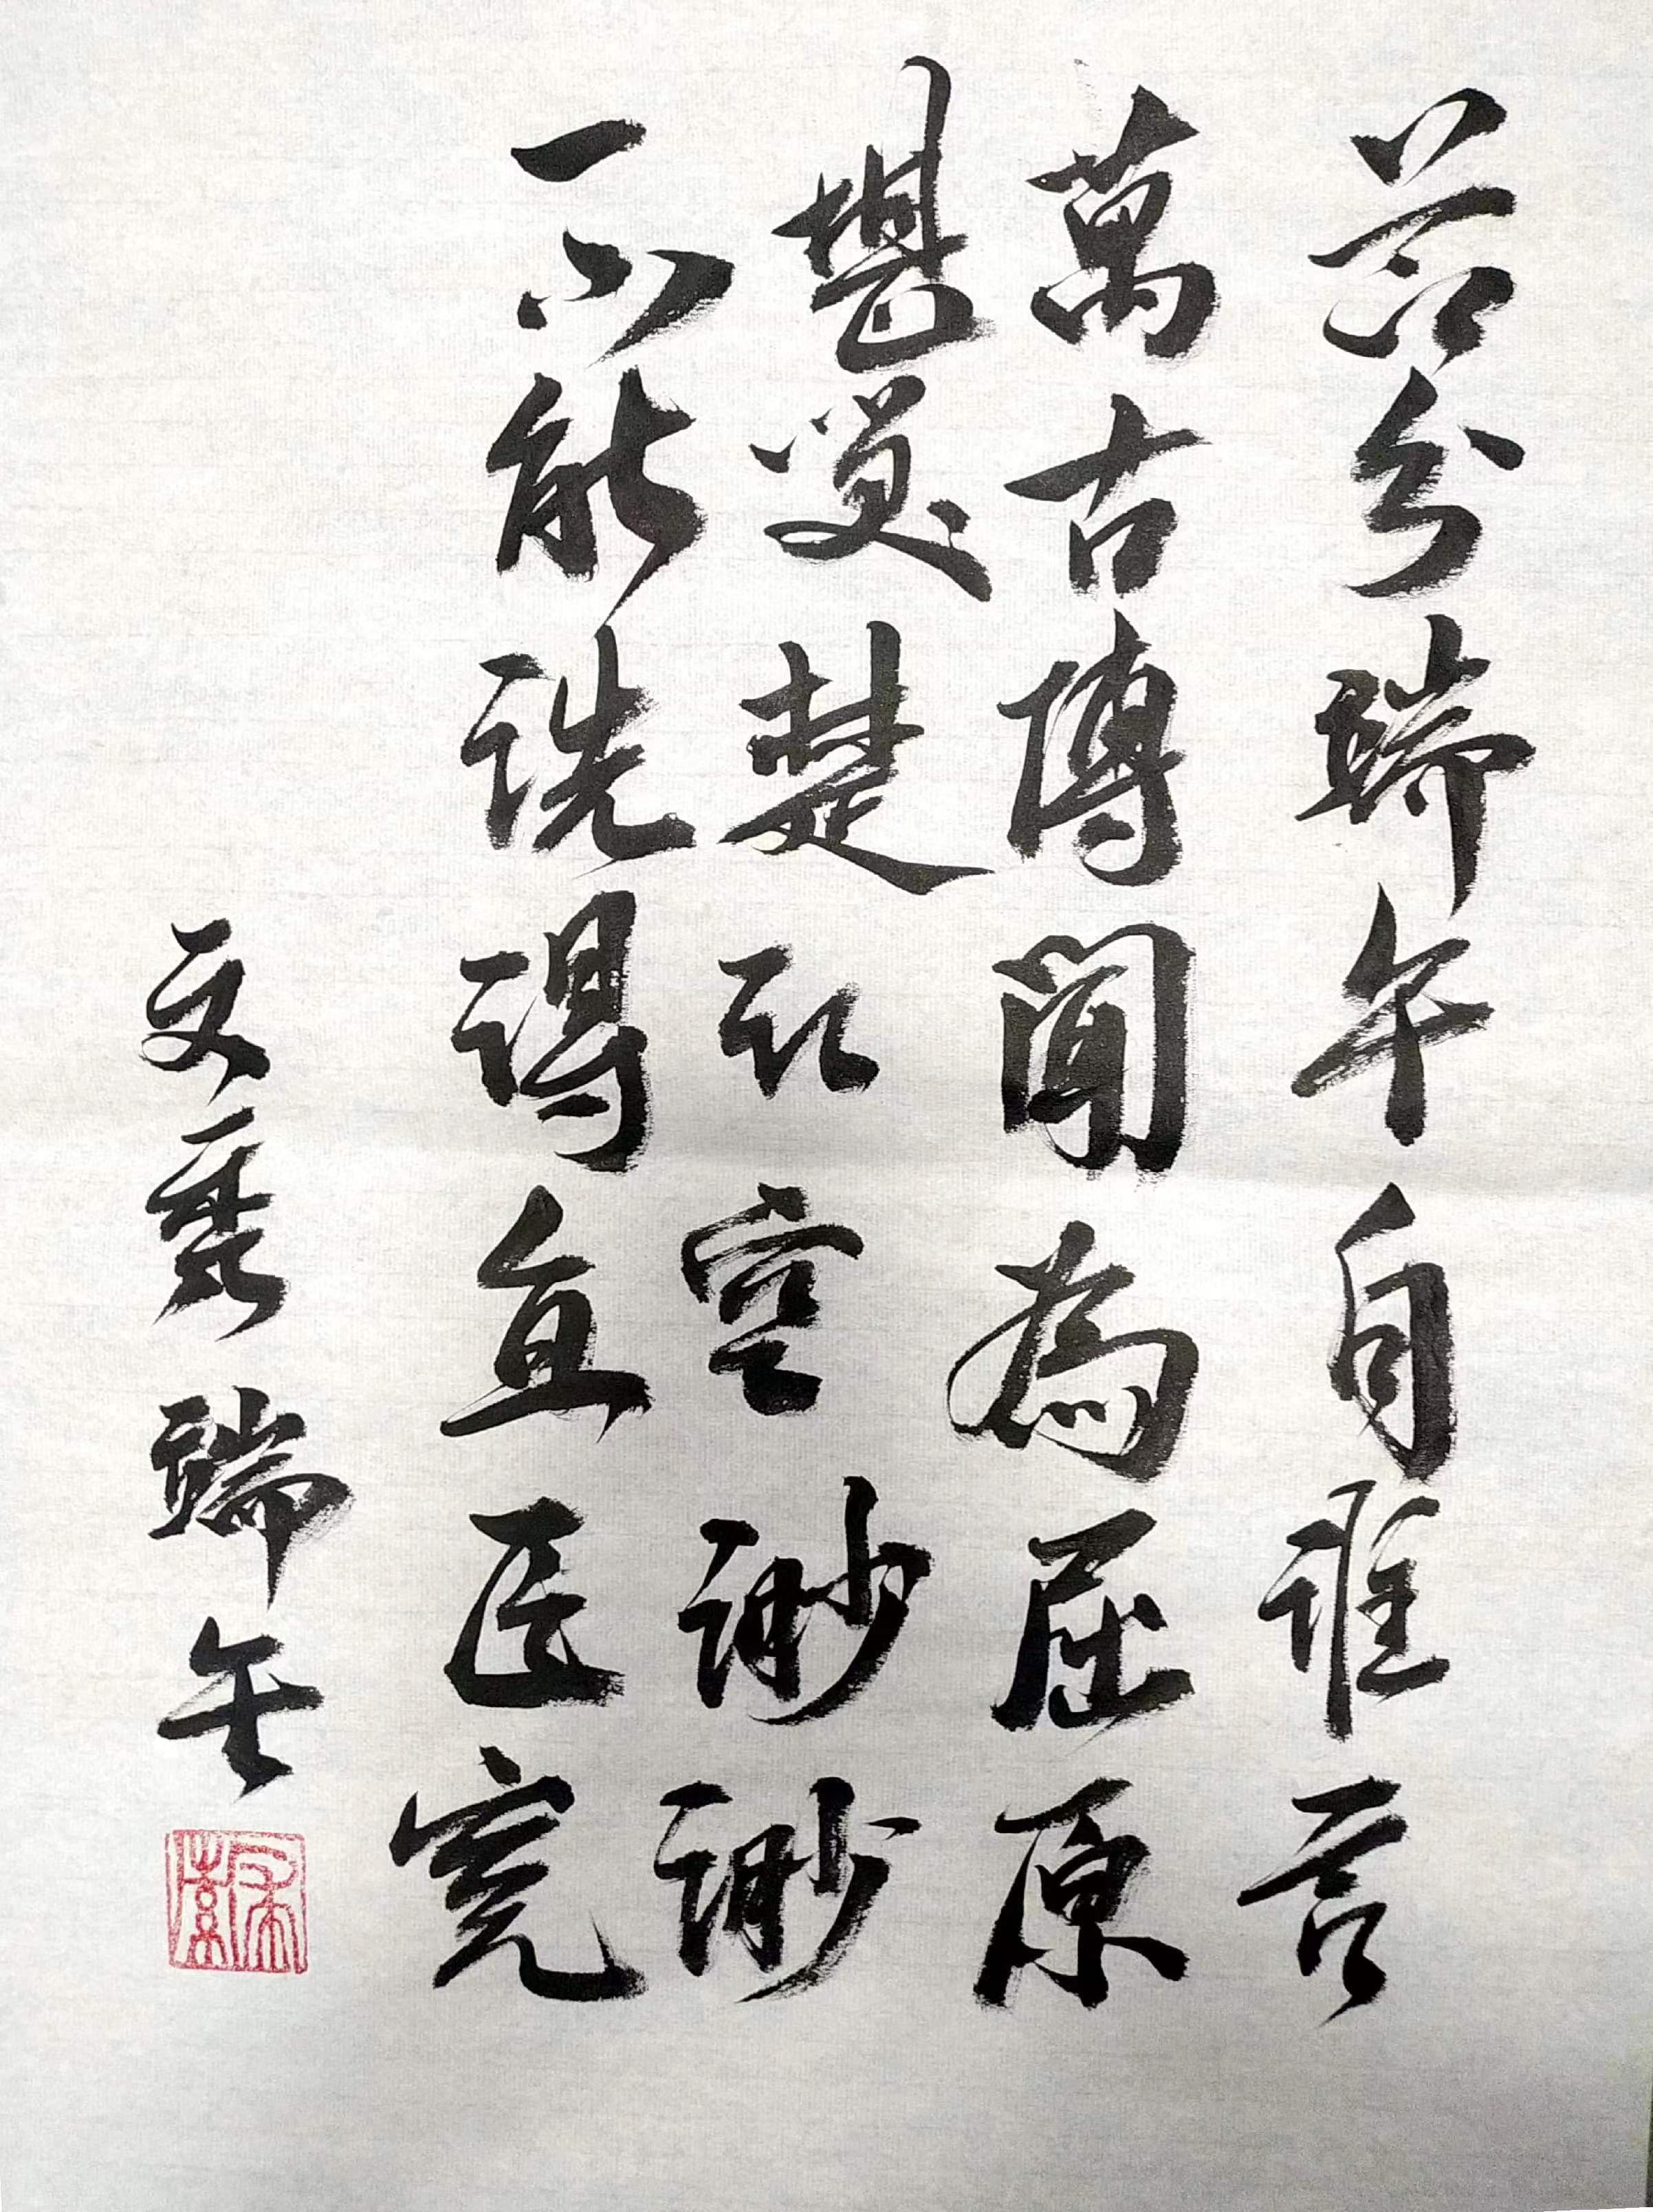 節分端午自誰言
萬古傳聞為屈原
堪笑楚江空渺渺
不能洗得直臣冤
文秀 端午